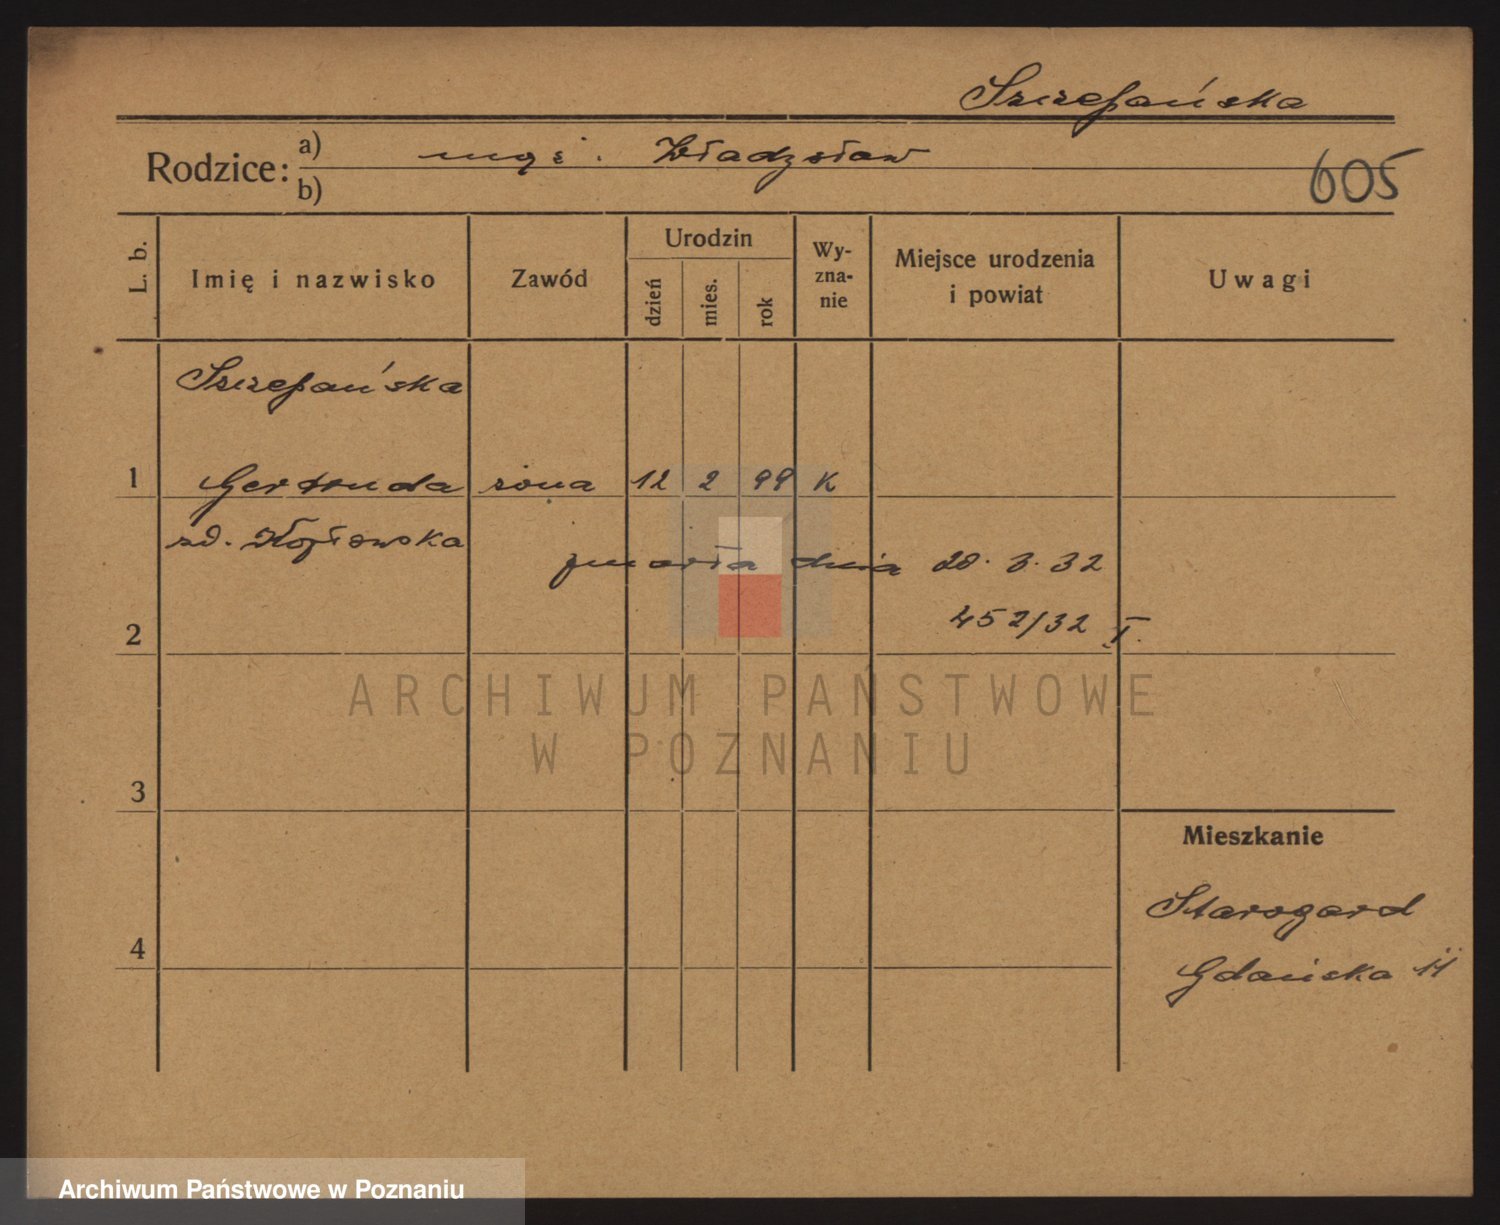 Szczepańska
Rodzice: a) mąż. Władysław
b)
605
L. b.
Imię i nazwisko
Zawód
Urodzin
dzień
mies.
rok
Wy-
zna-
nie
Miejsce urodzenia
i powiat
Uwagi
Szczepańska
1 Gertruda żona 12 2 99 K
zd. Kopłowska
zmarła dnia 28. 3. 32
452/32 I.
2
ARCHIWUM PAŃSTWOWE
W POZNANIU
3
Mieszkanie
Starogard
4
Gdańska 11
Archiwum Państwowe w Poznaniu